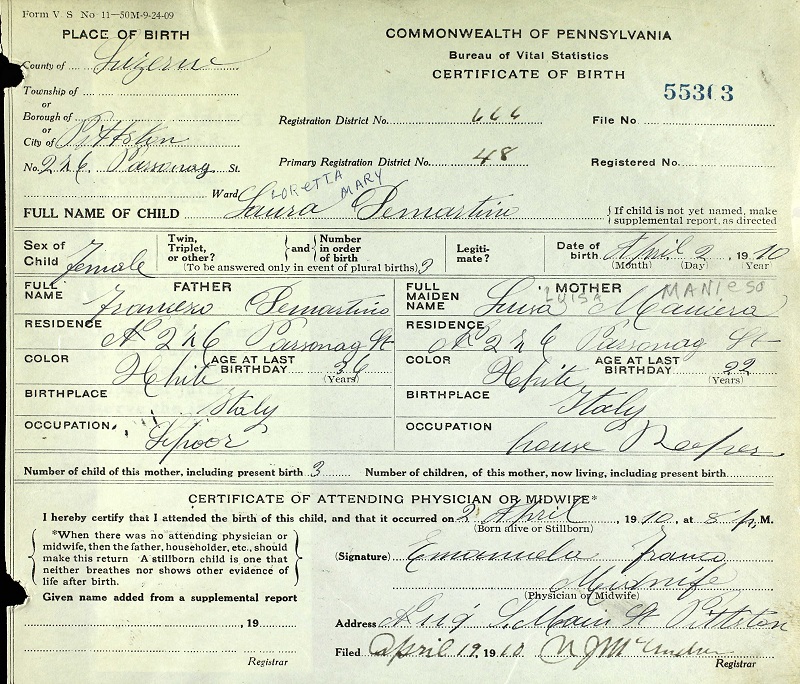 Form V S No 11—50M-9-24-09
PLACE OF BIRTH
COMMONWEALTH OF PENNSYLVANIA
Bureau of Vital Statistics
CERTIFICATE OF BIRTH
County of Luzerne
Township of
or
Borough of
or
City of Pittston
55303
Registration District No. 666 File No.
No. 246 Parsonag St.
Primary Registration District No. 48 Registered No.
Ward
LORETTA MARY
FULL NAME OF CHILD Laura Demartino {If child is not yet named, make supplemental report, as directed
Sex of Child female Twin, Triplet, or other? and Number in order of birth 3 (To be answered only in event of plural births) Legitimate? Date of birth April 2, 1910 (Month) (Day) (Year)
FATHER MOTHER
MANIESO
LUISA
FULL NAME Francesco Demartino FULL MAIDEN NAME Luisa Maniera
RESIDENCE No 246 Parsonag St RESIDENCE No 246 Parsonag St
COLOR White AGE AT LAST BIRTHDAY 26 (Years) COLOR White AGE AT LAST BIRTHDAY 22 (Years)
BIRTHPLACE Italy BIRTHPLACE Italy
OCCUPATION OCCUPATION house Keeper
Number of child of this mother, including present birth 3 Number of children, of this mother, now living, including present birth
CERTIFICATE OF ATTENDING PHYSICIAN OR MIDWIFE*
I hereby certify that I attended the birth of this child, and that it occurred on 2 April, 1910, at 8 p. M.
(Born alive or Stillborn)
{*When there was no attending physician or midwife, then the father, householder, etc., should make this return A stillborn child is one that neither breathes nor shows other evidence of life after birth.}
(Signature) Emanuela Franco
Midwife
(Physician or Midwife)
Given name added from a supplemental report
, 19
Address S. Main St Pittston
Filed April 19, 1910
Registrar Registrar